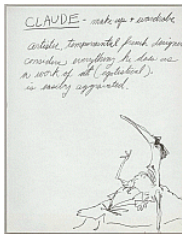 CLAUDE - make up + wardrobe
artistic, temperamental french designer
considers everything he does as
a work of art (egotistical).
is easily aggravated.